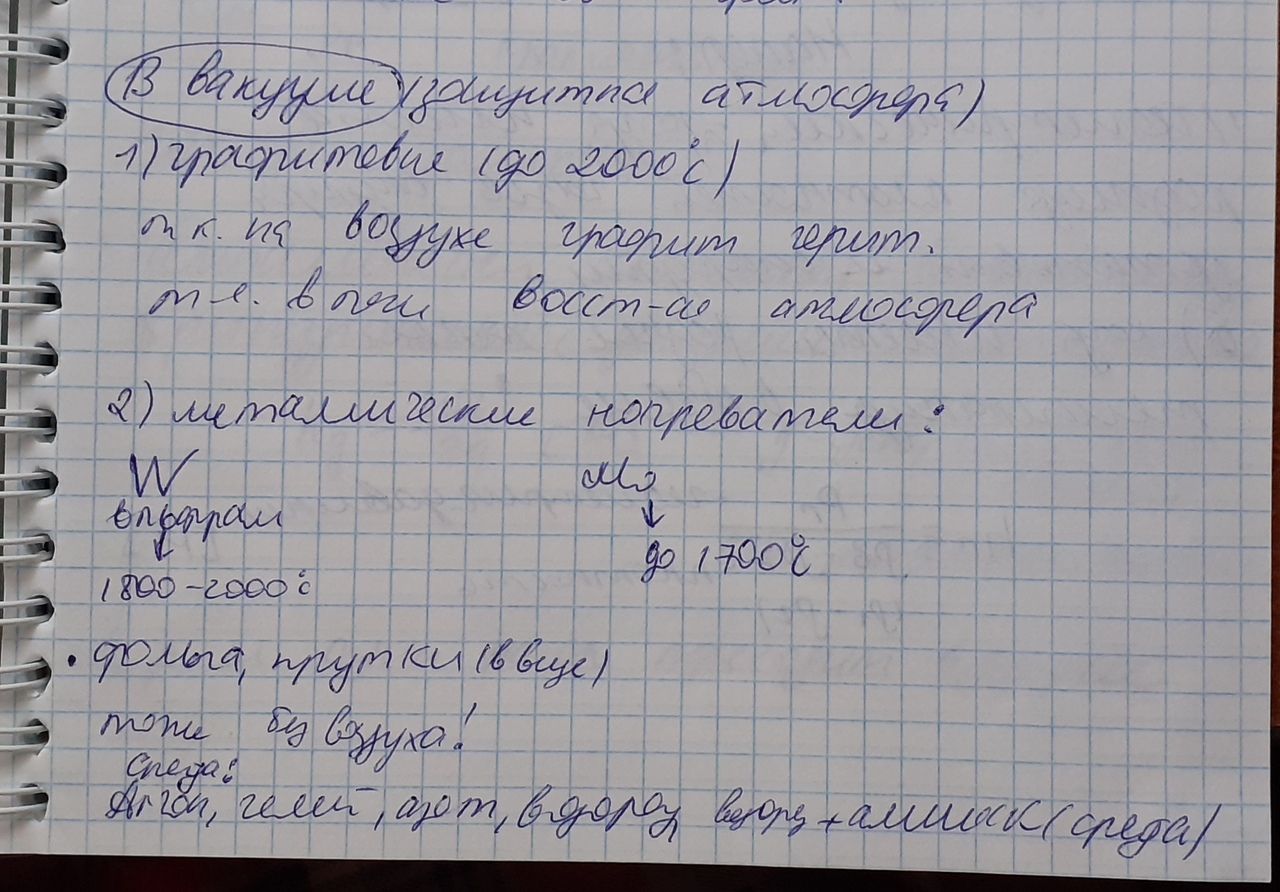 В вакууме (защитная атмосфера)
1) графитовые (до 2000°С)
т.к. на воздухе графит горит.
т.е. в печи восст-ая атмосфера
2) металлические нагреватели:
W Mo
вольфрам ↓
↓ до 1700°С
1800-2000°С
• фольга, прутки (в виде)
тоже без воздуха!
Среда:
Аргон, гелий, азот, водород, водород + аммиак (среда)